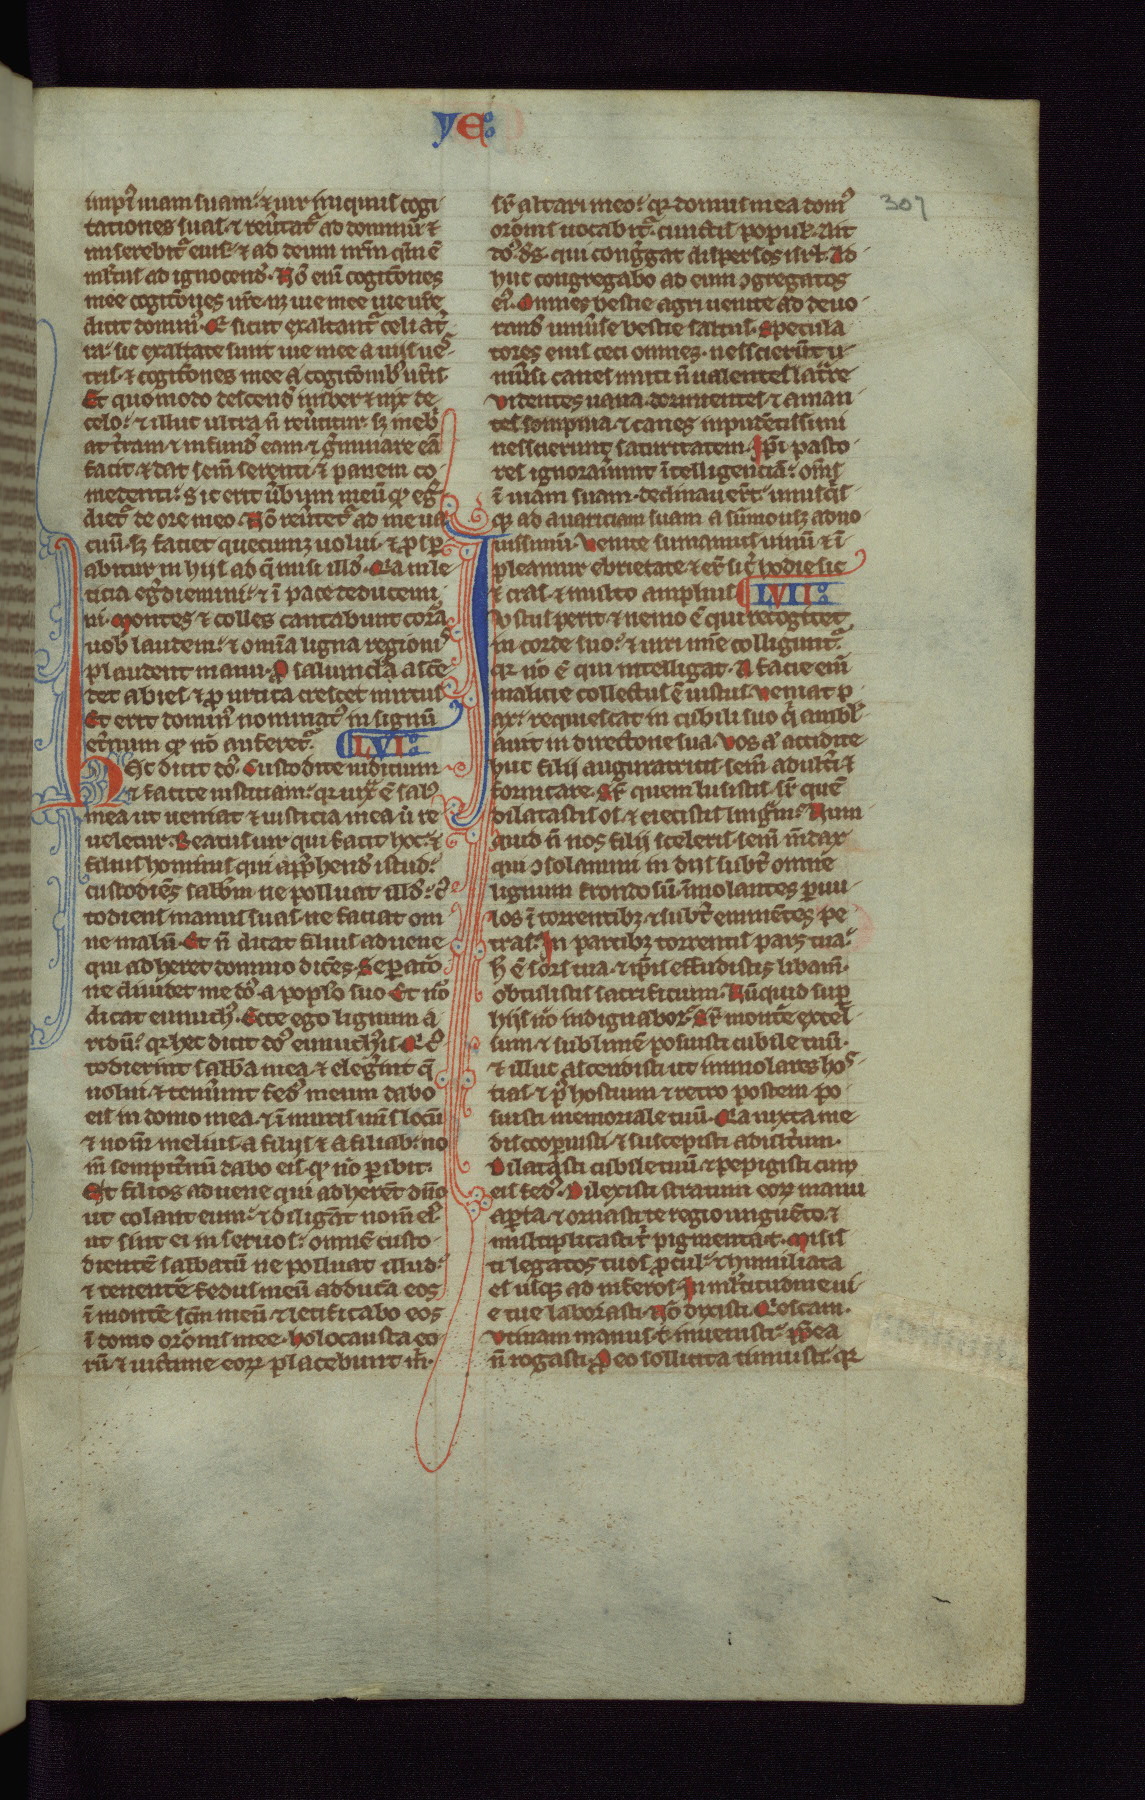 YE
307
imp᷒ uiam suam· ⁊ uir iniquus cogi
tationes suas· ⁊ reu̅tat᷑ ad dominu̅ ⁊
miserebit᷑ eius· ⁊ ad deum nr̅m q̅m e̅
mltus ad ignoscend᷒· No̅ eni̅ cogit̅ones
mee cogit̅ones ur̅e· nz uie mee uie ur̅e
dicit domin᷒· Q̅ sicut exaltant᷑ celi a t̅
ra· sic exaltate sunt uie mee a uiis ues
tris· ⁊ cogit̅ones mee a cogit̅omb᷒ ur̅is
Et quomodo descend᷒ imber ⁊ nix de
celo· ⁊ illuc ultra n̅ reu̅titur· sz inebi
at t̅ram ⁊ infund᷒ eam· ⁊ g̅minare ea̅
facit ⁊ dat sem̅ serenti ⁊ panem co
medenti· Sic erit u̅bum meu̅ q᷒ eg̅
diet᷑ de ore meo· No̅ reu̅tet᷑ ad me ua
cuu̅· sz faciet quecumz uolui· ⁊ p̅sp̅
abitur in hiis ad q̅ misi illd᷒· Q̅a in le
ticia eg̅diemini· ⁊ i̅ pace deducemi
ni· Montes ⁊ colles cantabunt cora̅
uob̅ laudem· ⁊ omi̅a ligna regionis
plaudent manu· P̅ saliuncl̅a asce̅
det abies· ⁊ p̅ urtica crescet mirtus
Et erit domin᷒ nominat᷒ in signu̅
et̅num q᷒ no̅ auferet᷑· LVI
Hec dicit do᷒· Custodite iudicium
⁊ facite iusticiam· qr iuxᷓ e̅ sal᷒
mea ut ueniat ⁊ iusticia mea ut re
ueletur· Beatus uir qui facit hoc· ⁊
filius hominis qui app̅hend᷒ istud·
custodie̅s sabb̅m ne polluat illd᷒· c᷒
todiens manus suas· ne faciat om
ne malu̅· Et n̅ dicat filius aduene
qui adheret domino dice̅s· Sep̅atio̅
ne diuidet me do᷒· a pop̅lo suo Et no̅
dicat eunuch᷒· Ecce ego lignum a
ridu̅· qr hec dicit do᷒ eunuch̅is· Q̅ c᷒
todierint sabb̅a mea· ⁊ eleg̅int q̅
uolui· ⁊ tenu̅int fed᷒ meum dabo
eis in domo mea· ⁊ i̅ muris m̅s locu̅
⁊ nom̅ melius· a filiis ⁊ a filiab᷒· no
m̅ sempit̅nu̅ dabo eis· q᷒ no̅ p̅ibit·
Et filios aduene qui adhere̅t dn̅o
ut colant eum· ⁊ diliga̅t nom̅ ei᷒
ut sint ei in seruos· omne̅ custo
diente̅ sabbatu̅ ne polluat illud·
⁊ tenente̅ fedus meu̅ adduca̅ eos
i̅ monte̅ sc̅m meu̅ ⁊ letificabo eos
i̅ domo oro̅nis mee· holocausta eo
ru̅ ⁊ uictime eorꝝ placebunt m̅·
sr̅ altari meo· qr domus mea dom᷒
oro̅nis uocabit᷑· cunctis populis· Ait
do᷒ ds̅· qui cong̅gat dispersos isrl· Ad
huc congregabo ad eum ꝯgregatos
ei᷒· Omnes bestie agri uenite ad deuo
rand᷒ uniu̅se bestie saltus· Specula
tores eius ceci omnes· nesscieru̅t u
niu̅si canes muti n̅ ualentes lat̅re
videntes uana· dormientes· ⁊ aman
tes sompnia· ⁊ canes inpude̅tissimi
nesscierunt saturitatem· Ip̅i pasto
res ignorau̅unt i̅telligencia̅· om̅s
i̅ uiam suam· declinauer̅t· unusq̅s
q᷒ ad auariciam suam a su̅mo usz ad no
uissimu̅· Venite sumamus uinu̅ ⁊ i̅
pleamur ebrietate ⁊ er̅ sic᷒ hodie sic
⁊ cras· ⁊ multo amplius LVII
Iustus perit ⁊ nemo e̅ qui recogitet
in corde suo· ⁊ uiri mi̅e colligunt᷑·
qr no̅ e̅ qui intelligat· A facie eni̅
malicie collectus e̅ iustus· Veniat p
ax· requiescat in cubili suo q̅ ambl̅
auit in directione sua· Vos a̅ accidite
huc filii auguratricis· sem̅ adult̅i ⁊
fornicare· Sr̅ quem lusistis· sr̅ que̅
dilatastis os· ⁊ eiecistis ling̅m· Num
quid n̅ uos filii sceleris· sem̅ m̅dax
qui ꝯsolamini in diis subt᷒ omne
lignum frondosu̅· i̅molantes p̅uu
los i̅ torrentibz· ⁊ subt᷒ emine̅tes pe
tras· In partibz torrentis pars tua·
h̅ e̅ sors tua· ⁊ ip̅is effudistis libam̅·
obtulistis sacrificium· Nu̅quid sup̅
hiis no̅ indignabor· Sr̅ monte̅ excel
sum· ⁊ sublime̅ posuisti cubile tuu̅·
⁊ illuc ascendisti ut inmolares hos
tias· ⁊ p᷒ hostium ⁊ retro postem po
suisti memoriale tuu̅· Q̅a iuxta me
discooperuisti· ⁊ suscepisti adult̅um·
Dilatasti cubile tuu̅ ⁊ pepigisti cum
eis fed᷒· Dilexisti stratum eorꝝ manu
ap̅ta· ⁊ ornasti te regio unguento· ⁊
multiplicasti t̅ pigmenta t̅· Misis
ti legatos tuos p̅cul· ⁊ humiliata
es usq᷒ ad inferos· In ml̅titudine ui
e tue laborasti· No̅ dixisti· Q̅escam·
Vitam manus t̅ inuenisti· P̅p̅ea
n̅ rogasti· P̅ eo sollicita timuisti· qr